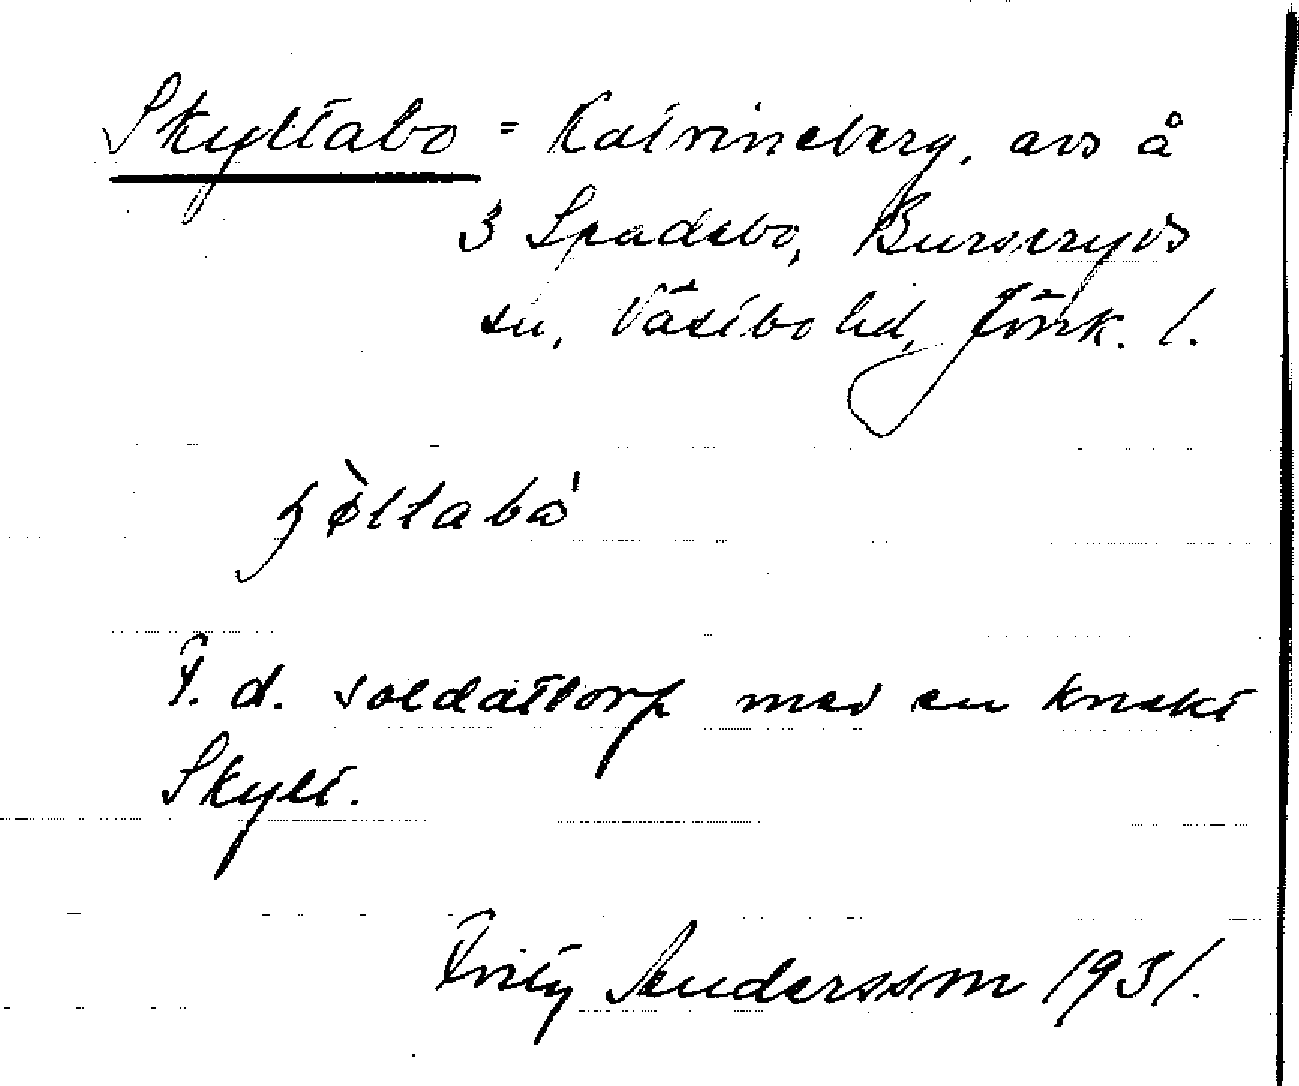 Skyltabo = Katrineberg, avs å
3 Spadebo, Burseryds
sn, Västbo hd, Jönk. l.
ʃø̀ltabó
F. d. soldattorp med en knekt
Skylt.
Frity Andersson 1931.